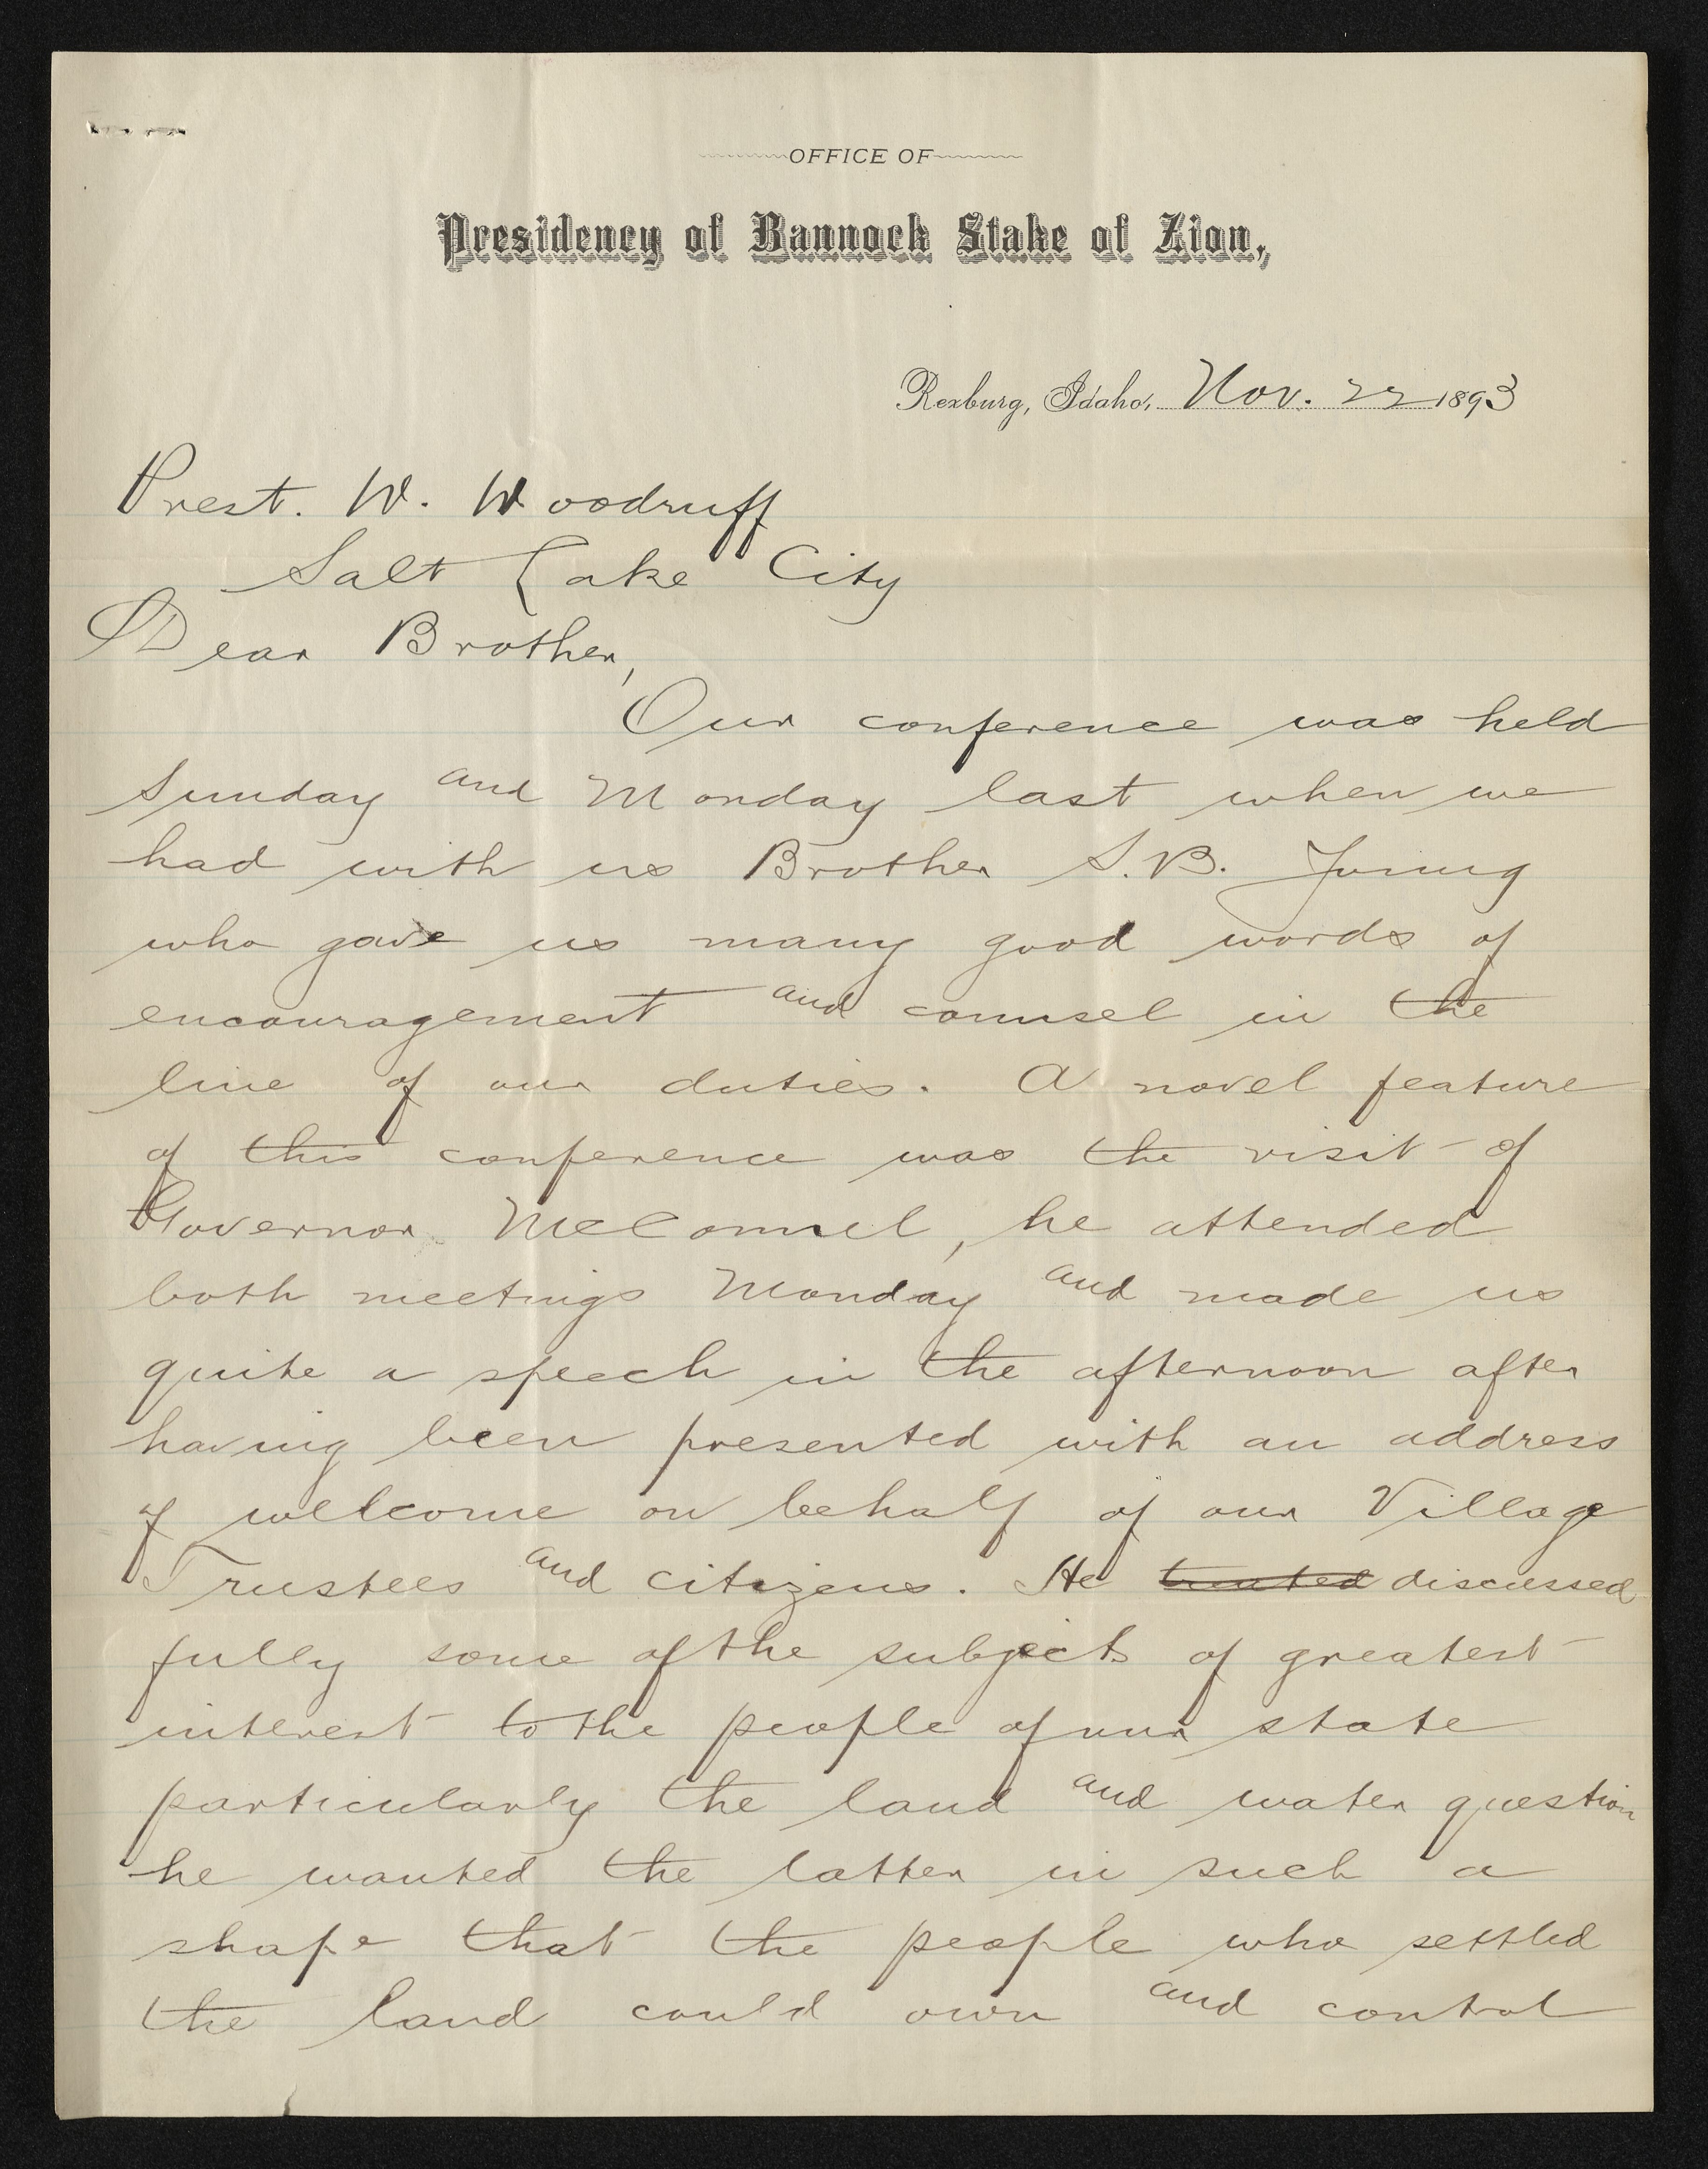 OFFICE OF
Presidency of Bannock Stake of Zion,
Rexburg, Idaho, Nov. 22 1893
Prest. W. Woodruff
Salt Lake City
Dear Brother,
Our conference was held
Sunday and Monday last when we
had with us Brother S.B. Young
who gave us many good words of
encouragement and counsel in the
line of our duties. A novel feature
of this conference was the visit of
Governor McConnel, he attended
both meetings Monday and made us
quite a speech in the afternoon after
having been presented with an address
of wellcome on behalf of our Village
Trustees and citizens. He treated discussed
fully some of the subjects of greatest
interest to the people of our state
particularly the land and water question
he wanted the latter in such a
shape that the people who settled
the land could own and control